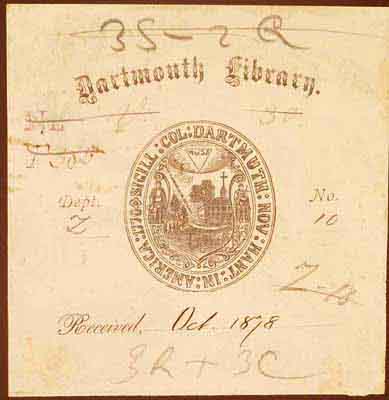 35-2 R
Dartmouth Library.
30
SIGILL: COL: DARTMUTH: NOV: HANT: IN: AMERICA: 1770
Dept.
No.
Z
10
Z-18
Received, Oct. 1878
3R + 3C